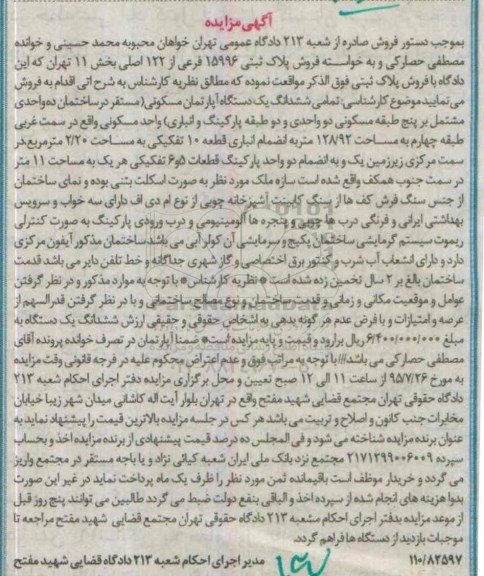 آگهی مزایده
بموجب دستور فروش صادره از شعبه ۲۱۳ دادگاه عمومی تهران خواهان محبوبه محمد حسینی و خوانده
مصطفی حصارکی و به خواسته فروش پلاک ثبتی ۱۵۹۹۶ فرعی از ۱۲۲ اصلی بخش ۱۱ تهران که این
دادگاه با فروش پلاک ثبتی فوق الذکر موافقت نموده که مطالق نظریه کارشناس به شرح اتی اقدام به فروش
می نمایید موضوع کارشناسی: تمامی ششدانگ یک دستگاه آپارتمان مسکونی (مستقر در ساختمان ده واحدی
مشتمل بر پنج طبقه مسکونی دو واحدی و دو طبقه پارکینگ و انباری) واحد مسکونی واقع در سمت غربی
طبقه چهارم به مساحت ۱۲۸/۹۲ متر به انضمام انباری قطعه ۱۰ تفکیکی به مساحت ۲/۲۰ مترمربع در
سمت مرکزی زیرزمین یک و به انضمام دو واحد پارکینگ قطعات ۵و۶ تفکیکی هر یک به مساحت ۱۱ متر
در سمت جنوب همکف واقع شده است سازه ملک مورد نظر به صورت اسکلت بتنی بوده و نمای ساختمان
از جنس سنگ فرش کف ها از سنگ کابینت آشپزخانه چوبی از نوع ام دی اف دارای سه خواب و سرویس
بهداشتی ایرانی و فرنگی درب ها چوبی و پنجره ها آلومینیومی و درب ورودی پارکینگ به صورت کنترلی
ریموت سیستم گرمایشی ساختمان پکیج و سرمایشی آن کولر آبی می باشد ساختمان مذکور آیفون مرکزی
دارد و دارای انشعاب آب شرب و کنتور برق اختصاصی و گاز شهری جداگانه و خط تلفن دایر می باشد قدمت
ساختمان بالغ بر ۲ سال تخمین زده شده است * نظریه کارشناس * با توجه به موارد مذکور و در نظر گرفتن
عوامل و موقعیت مکانی و زمانی و قدمت ساختمان و نوع مصالح ساختمانی و با در نظر گرفتن قدرالسهم از
عرصه و امتیازات و با فرض عدم هر گونه بدهی به اشخاص حقوقی و حقیقی ارزش ششدانگ یک دستگاه به
مبلغ ۶/۴۰۰/۰۰۰/۰۰۰ ریال برآورد و قیمت و پایه مزایده است* ضمنا آپارتمان در تصرف خوانده پرونده آقای
مصطفی حصارکی می باشد/// با توجه به مراتب فوق و عدم اعتراض محکوم علیه در فرجه قانونی وقت مزایده
به مورخ ۹۵/۷/۲۶ از ساعت ۱۱ الی ۱۲ صبح تعیین و محل برگزاری مزایده دفتر اجرای احکام شعبه ۲۱۳
دادگاه حقوقی تهران مجتمع قضایی شهید مفتح واقع در تهران بلوار آیت اله کاشانی میدان شهر زیبا خیابان
مخابرات جنب کانون و اصلاح و تربیت می باشد هر کس در جلسه مزایده بالاترین قیمت را پیشنهاد نماید به
عنوان برنده مزایده شناخته می شود و فی المجلس ده درصد قیمت پیشنهادی از برنده مزایده اخذ و بحساب
سپرده ۲۱۷۱۲۹۹۰۰۶۰۰۹ مجتمع نزد بانک ملی ایران شعبه کیائی نژاد و یا باجه مستقر در مجتمع واریز
می گردد و خریدار موظف است باقیمانده ثمن مورد نظر را ظرف یک ماه پرداخت نماید در غیر این صورت
بدوا هزینه های انجام شده از سپرده اخذ و الباقی بنفع دولت ضبط می گردد طالبین می توانند پنج روز قبل
از موعد مزایده بدفتر اجرای احکام شعبه ۲۱۳ دادگاه حقوقی تهران مجتمع قضایی شهید مفتح مراجعه تا
موجبات بازدید از دستگاه ها فراهم گردد.
۱۱۰/۸۲۵۹۷ مدیر اجرای احکام شعبه ۲۱۳ دادگاه قضایی شهید مفتح